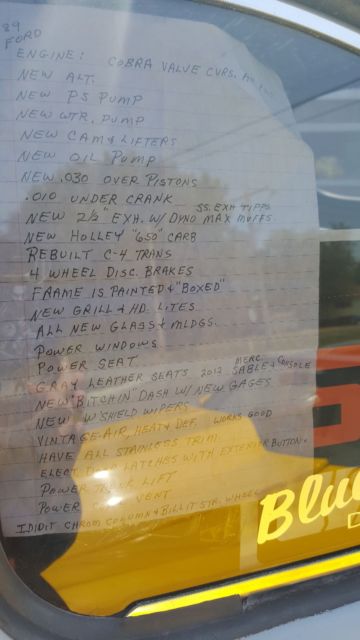 89
FORD
ENGINE: COBRA VALVE CVRS.
NEW ALT.
NEW PS PUMP
NEW WTR. PUMP
NEW CAM & LIFTERS
NEW OIL PUMP
NEW .030 OVER PISTONS
.010 UNDER CRANK
SS. EXH TIPPS
NEW 2½" EXH. W/ DYNO MAX MUFFS.
NEW HOLLEY "650" CARB
REBUILT C-4 TRANS
4 WHEEL DISC. BRAKES
FRAME IS PAINTED & "BOXED"
NEW GRILL & HD. LITES
ALL NEW GLASS & MLDGS.
POWER WINDOWS
POWER SEAT
GRAY LEATHER SEATS 2012 MERC. SABLE & CONSOLE
NEW "BITCHIN" DASH W/ NEW GAGES
NEW W'SHIELD WIPERS
VINTAGE-AIR, HEAT & DEF. WORKS GOOD
HAVE ALL STAINLESS TRIM
ELECT. DOOR LATCHES WITH EXTERIOR BUTTON.
POWER TRUNK LIFT
POWER VENT
IDIDIT CHROM COLUMN & BILLIT STR. WHEEL
Blue